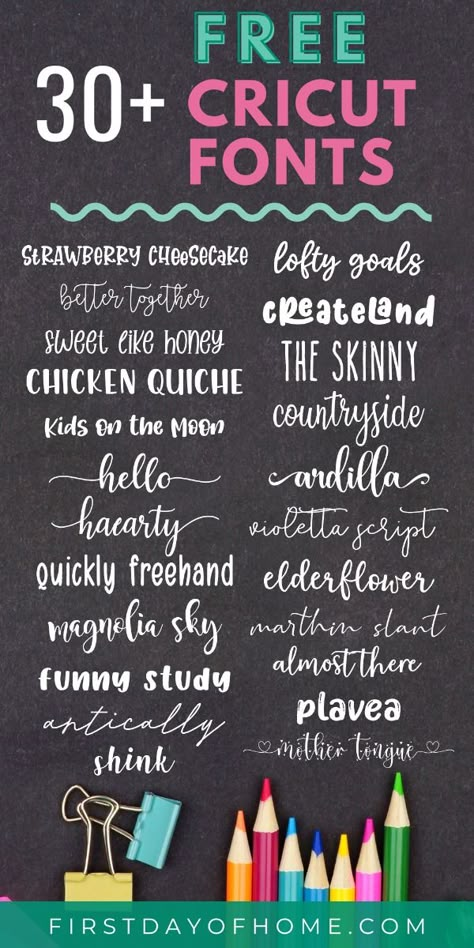 30+ FREE
CRICUT
FONTS
Strawberry Cheesecake
better together
sweet like honey
CHICKEN QUICHE
Kids on the Moon
hello
haearty
quickly freehand
magnolia sky
funny study
antically
shink
lofty goals
createland
THE SKINNY
countryside
ardilla
violetta script
elderflower
marthin slant
almost there
plavea
mother tongue
FIRSTDAYOFHOME.COM